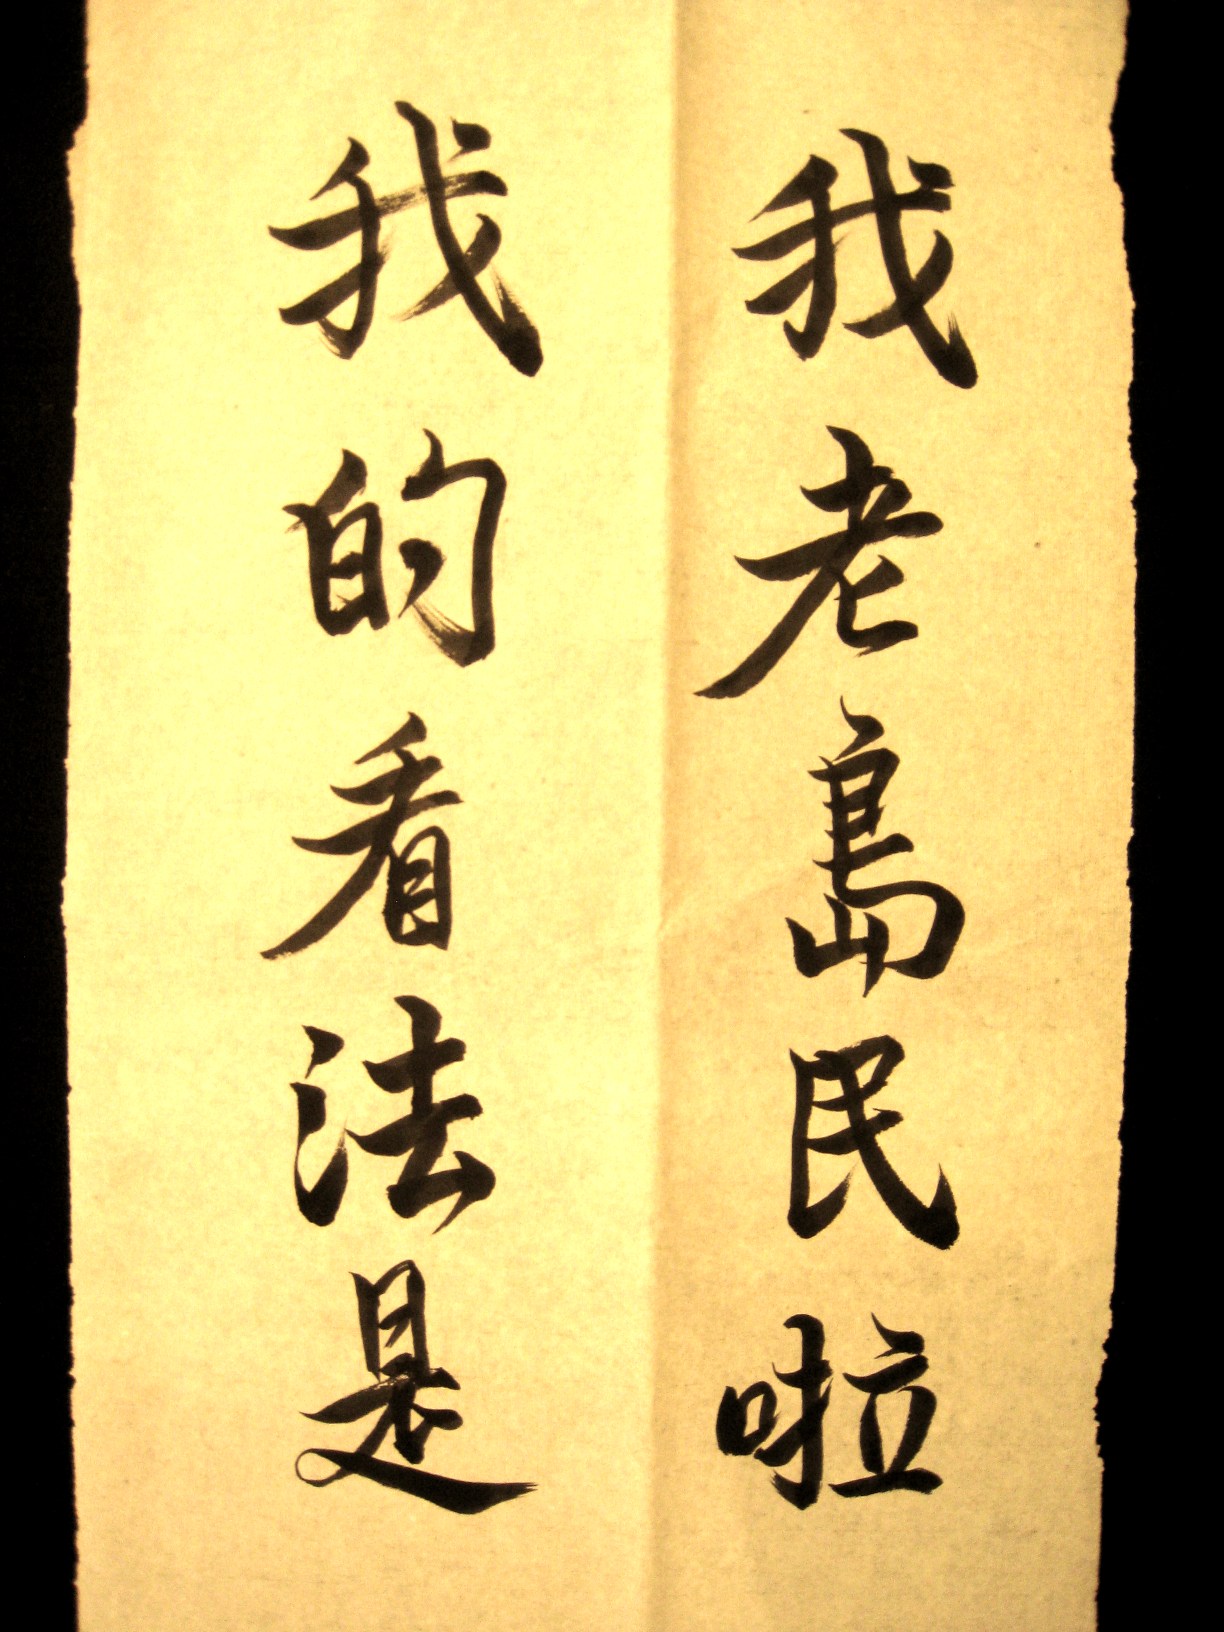 我老島民啦
我的看法是